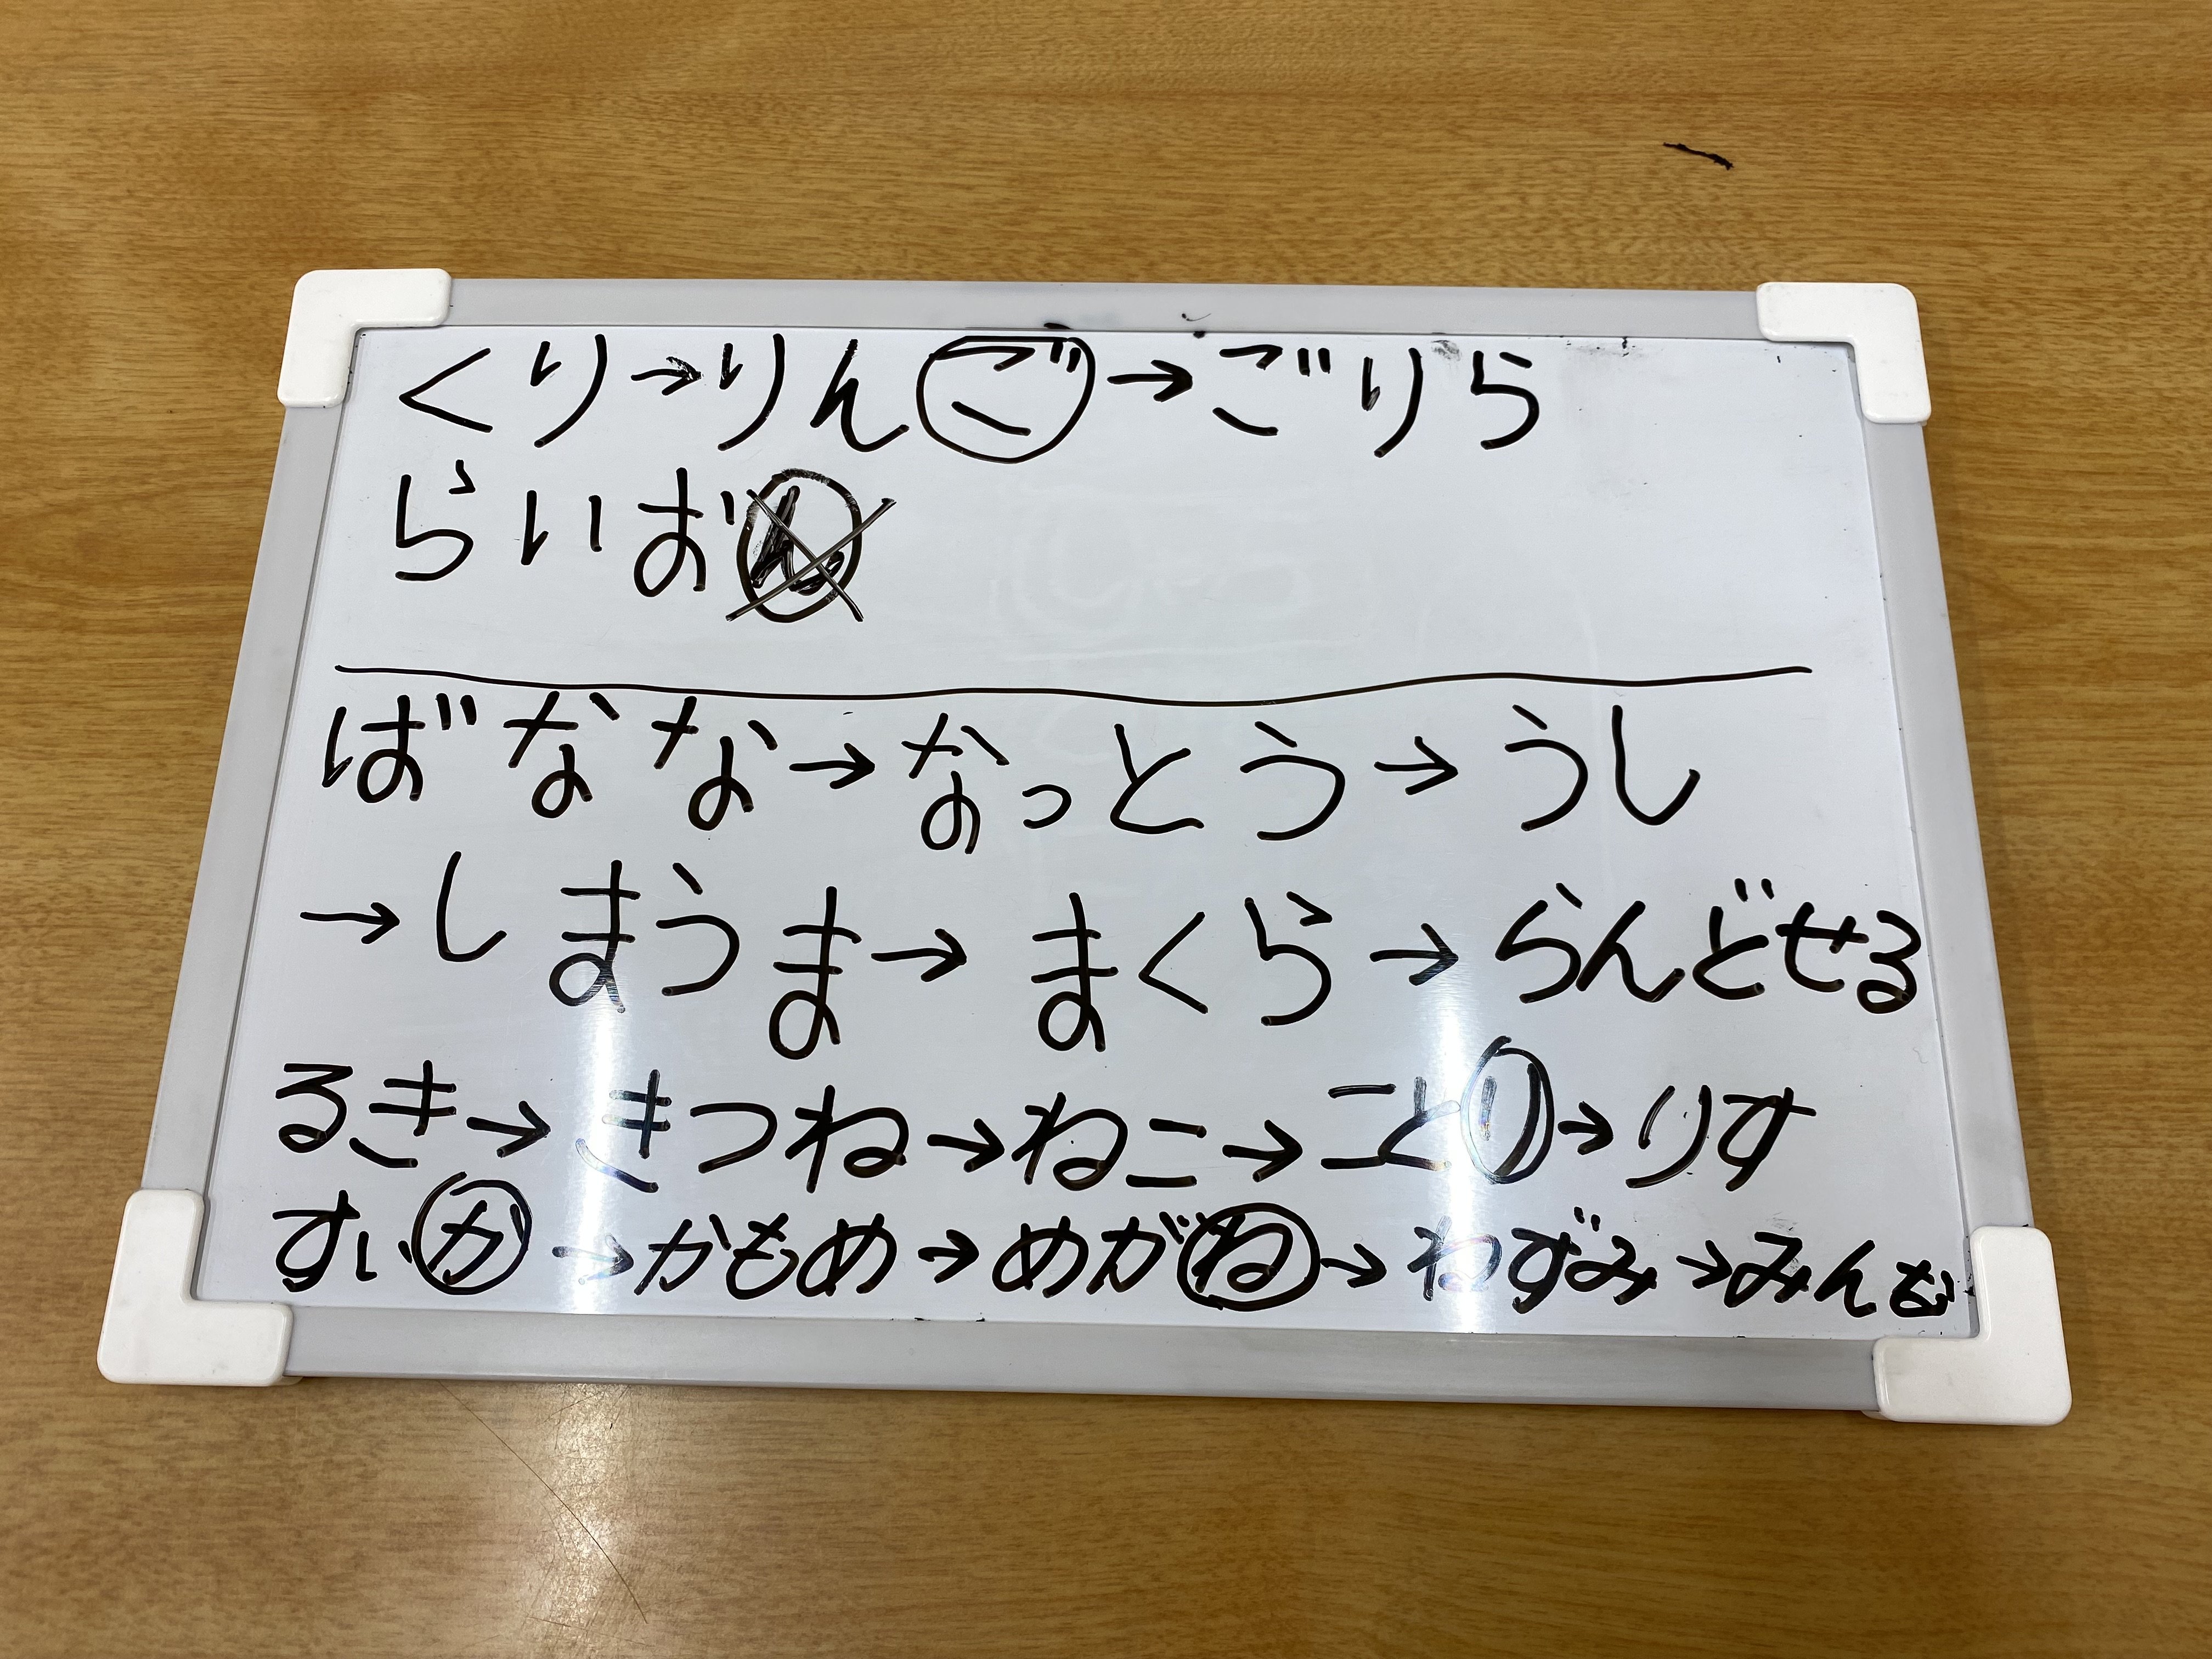 くり→りんご→ごりら
らいおん
ばなな→なっとう→うし
→しまうま→まくら→らんどせる
るき→きつね→ねこ→ことり→りす
すいか→かもめ→めがね→ねずみ→みんな